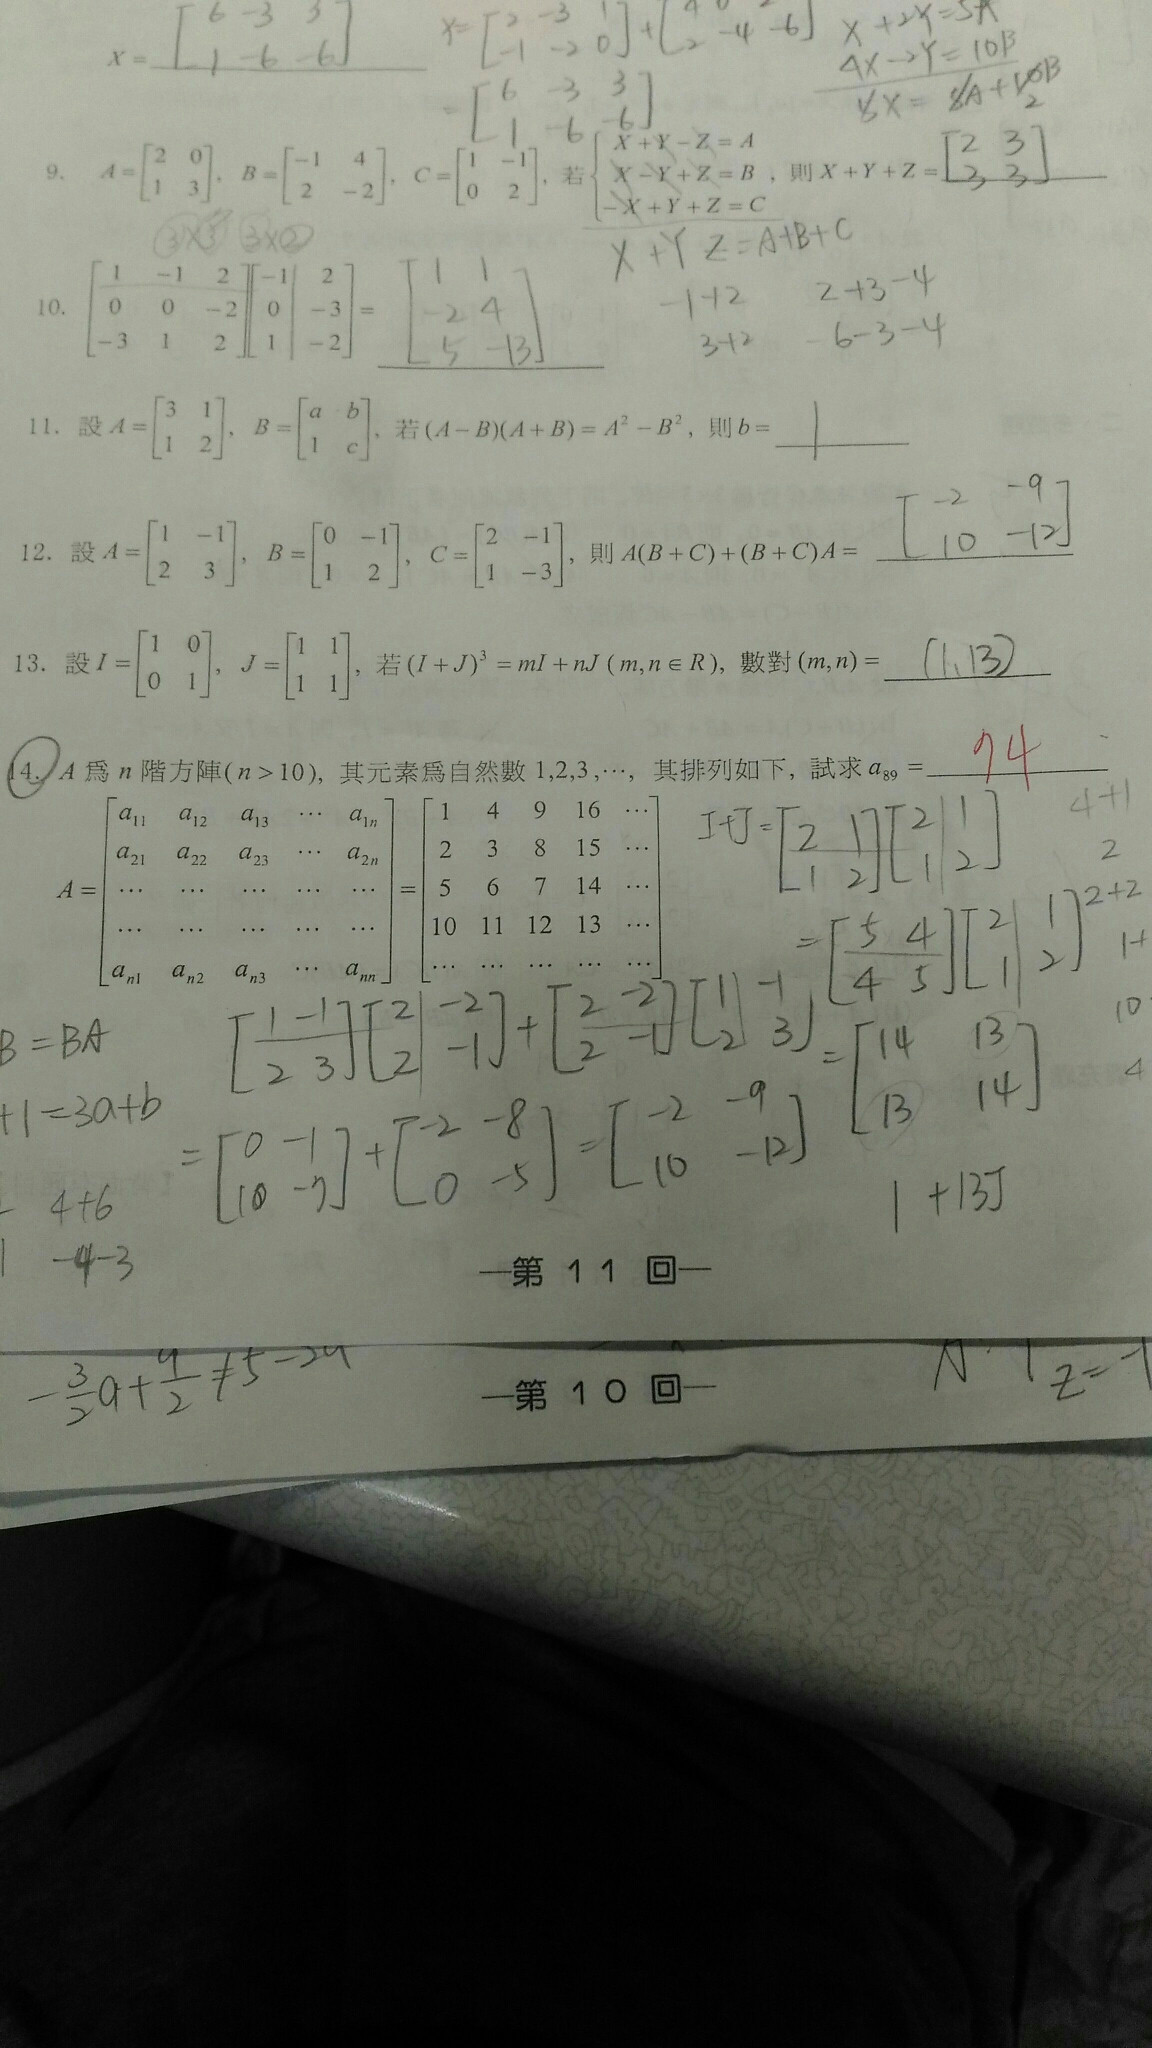 X = [6 -3 3; 1 -6 -6]
= [6 -3 3; 1 -6 -6]
X + 2Y = 5A
4X - 2Y = 10B
9. A = [2 0; 1 3], B = [-1 4; 2 -2], C = [1 -1; 0 2], 若 { X+Y-Z=A X-Y+Z=B -X+Y+Z=C , 則 X+Y+Z = [2 3; 3 3]
X + Y Z = A+B+C
3×3 3×2
10. [1 -1 2; 0 0 -2; -3 1 2][-1 2; 0 -3; 1 -2] = [1 1; -2 4; 5 -13]
-1+2 2+3-4
3+2 -6-3-4
11. 設 A = [3 1; 1 2], B = [a b; 1 c], 若 (A-B)(A+B) = A² - B², 則 b = 1
12. 設 A = [1 -1; 2 3], B = [0 -1; 1 2], C = [2 -1; 1 -3], 則 A(B+C)+(B+C)A = [-2 -9; 10 -12]
13. 設 I = [1 0; 0 1], J = [1 1; 1 1], 若 (I+J)³ = mI + nJ (m, n ∈ R), 數對 (m, n) = (1,13)
14. A 為 n 階方陣(n > 10), 其元素為自然數 1,2,3,⋯, 其排列如下, 試求 a₈₉ = 74
A = [a₁₁ a₁₂ a₁₃ ⋯ a₁ₙ; a₂₁ a₂₂ a₂₃ ⋯ a₂ₙ; ⋯ ⋯ ⋯ ⋯ ⋯; ⋯ ⋯ ⋯ ⋯ ⋯; aₙ₁ aₙ₂ aₙ₃ ⋯ aₙₙ] = [1 4 9 16 ⋯; 2 3 8 15 ⋯; 5 6 7 14 ⋯; 10 11 12 13 ⋯; ⋯ ⋯ ⋯ ⋯ ⋯]
I+J = [2 1; 1 2][2 1; 1 2]
4+1
2
= [5 4; 4 5][2 1; 1 2]
2+2
1+
10
4
= [14 13; 13 14]
1 + 13J
B = BA
+1 = 3a+b
4+6
-4-3
[1 -1; 2 3][2 -2; 2 -1] + [2 -2; 2 -1][1 -1; 2 3]
= [0 -1; 10 -7] + [-2 -8; 0 -5] = [-2 -9; 10 -12]
—第 11 回—
—第 10 回—